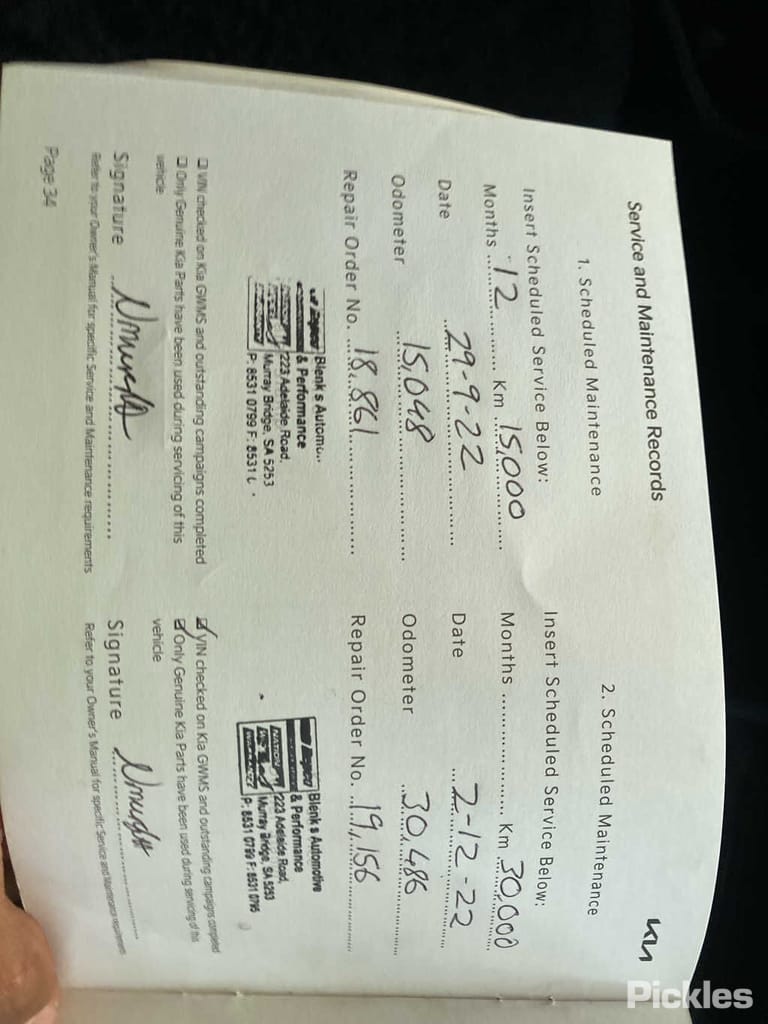 Service and Maintenance Records
KIA
1. Scheduled Maintenance
Insert Scheduled Service Below:
Months 12 Km 15,000
Date 29-9-22
Odometer 15,048
Repair Order No. 18,861
Blenk's
& Performance
223 Adelaide Road,
Murray Bridge, SA 5253
P: 8531 0799 F:
VIN checked on Kia GWMS and outstanding campaigns completed
Only Genuine Kia Parts have been used during servicing of this
vehicle
Signature
Refer to your Owner's Manual for specific Service and Maintenance requirements
Page 34
2. Scheduled Maintenance
Insert Scheduled Service Below:
Months Km 30,000
Date 2-12-22
Odometer 30,486
Repair Order No. 19,156
Repco
Blenk's Automotive
& Performance
223 Adelaide Road,
Murray Bridge, SA 5253
P: 8531 0799 F: 8531 0795
VIN checked on Kia GWMS and outstanding campaigns completed
Only Genuine Kia Parts have been used during servicing of this
vehicle
Signature
Refer to your Owner's Manual for specific Service and Maintenance requirements
Pickles